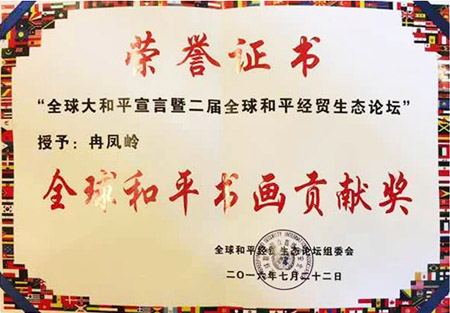 荣誉证书
“全球大和平宣言暨二届全球和平经贸生态论坛”
授予：冉凤岭
全球和平书画贡献奖
全球和平经贸生态论坛组委会
二〇一六年七月二十二日